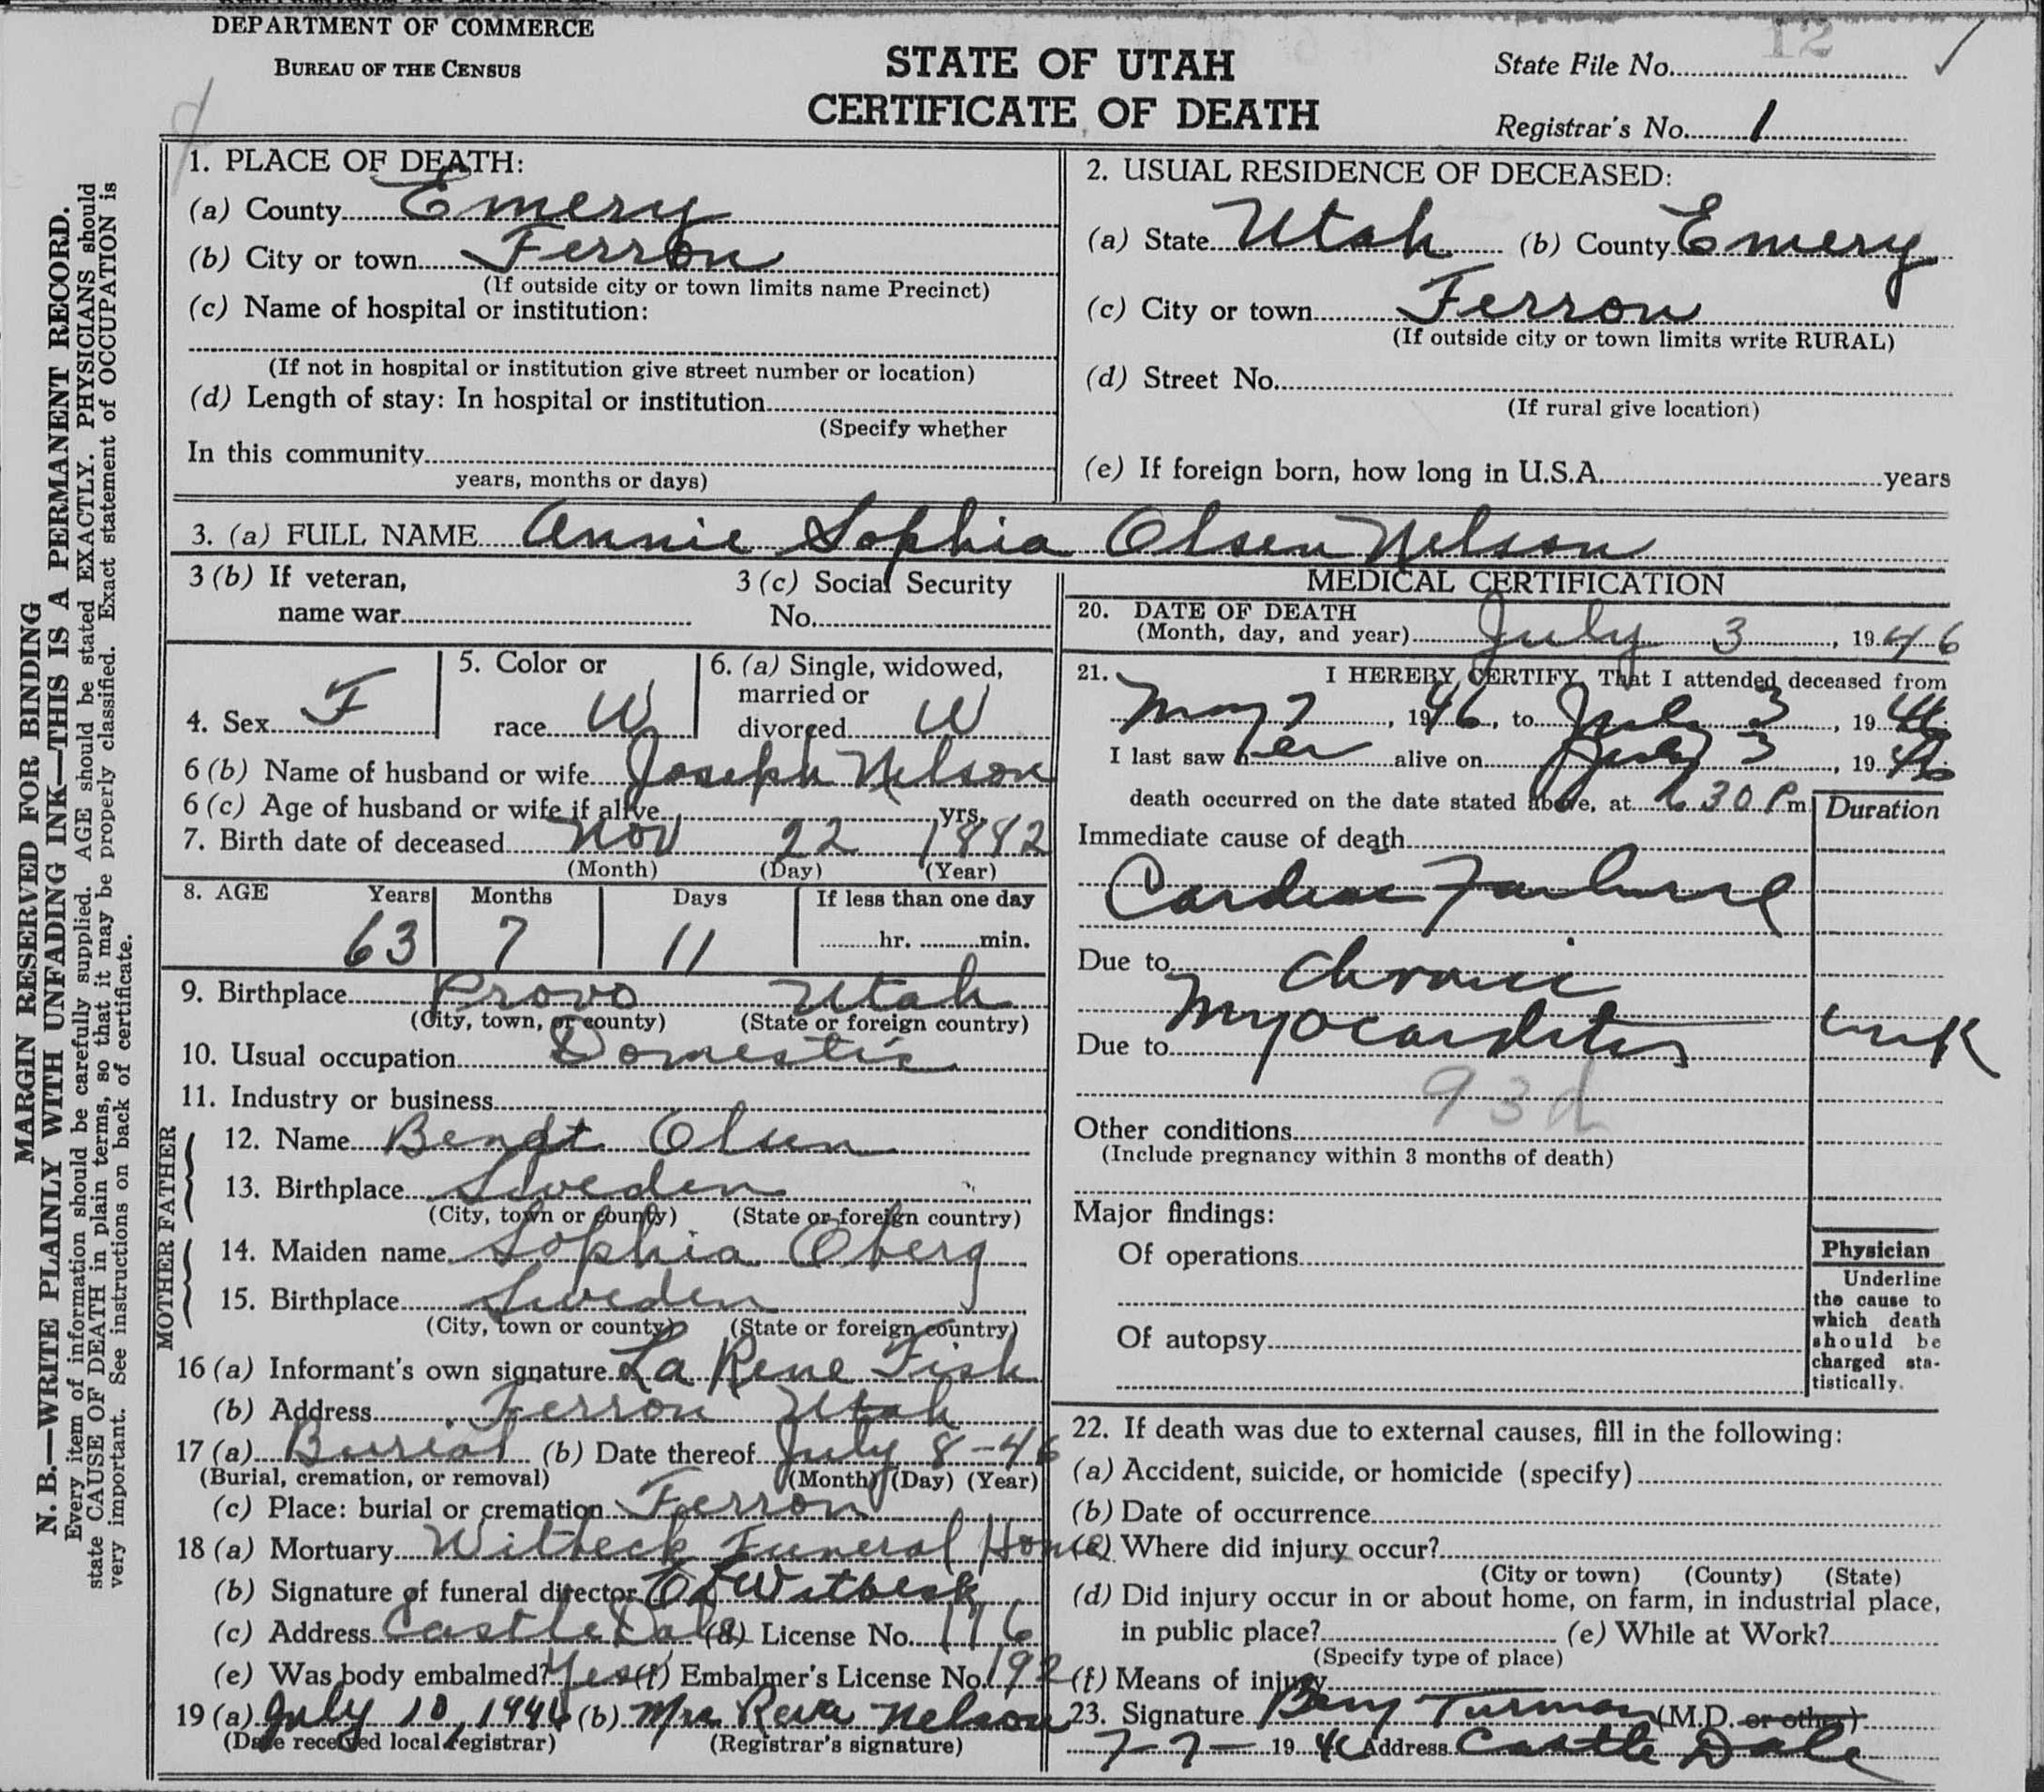 DEPARTMENT OF COMMERCE
BUREAU OF THE CENSUS
STATE OF UTAH
CERTIFICATE OF DEATH
State File No. 12
Registrar's No. 1
MARGIN RESERVED FOR BINDING
N. B.—WRITE PLAINLY WITH UNFADING INK—THIS IS A PERMANENT RECORD.
Every item of information should be carefully supplied. AGE should be stated EXACTLY. PHYSICIANS should
state CAUSE OF DEATH in plain terms, so that it may be properly classified. Exact statement of OCCUPATION is
very important. See instructions on back of certificate.
1. PLACE OF DEATH:
(a) County Emery
(b) City or town Ferron
(If outside city or town limits name Precinct)
(c) Name of hospital or institution:
(If not in hospital or institution give street number or location)
(d) Length of stay: In hospital or institution
(Specify whether
In this community
years, months or days)
2. USUAL RESIDENCE OF DECEASED:
(a) State Utah (b) County Emery
(c) City or town Ferron
(If outside city or town limits write RURAL)
(d) Street No.
(If rural give location)
(e) If foreign born, how long in U.S.A. years
3. (a) FULL NAME Annie Sophia Olsen Nelson
3 (b) If veteran,
name war
3 (c) Social Security
No.
4. Sex F
5. Color or
race W
6. (a) Single, widowed,
married or
divorced W
6 (b) Name of husband or wife Joseph Nelson
6 (c) Age of husband or wife if alive yrs.
7. Birth date of deceased Nov 22 1882
(Month) (Day) (Year)
8. AGE Years Months Days If less than one day
63 7 11 hr. min.
9. Birthplace Provo Utah
(City, town, or county) (State or foreign country)
10. Usual occupation Domestic
11. Industry or business
FATHER
12. Name Bendt Olsen
13. Birthplace Sweden
(City, town or county) (State or foreign country)
MOTHER
14. Maiden name Sophia Oberg
15. Birthplace Sweden
(City, town or county) (State or foreign country)
16 (a) Informant's own signature La Rene Fish
(b) Address Ferron Utah
17 (a) Burial (b) Date thereof July 8-46
(Burial, cremation, or removal) (Month) (Day) (Year)
(c) Place: burial or cremation Ferron
18 (a) Mortuary Witbeck Funeral Home
(b) Signature of funeral director Witbeck
(c) Address Castle Dale (d) License No. 176
(e) Was body embalmed? Yes (f) Embalmer's License No. 192
19 (a) July 10, 1946 (b) Mrs Reva Nelson
(Date received local registrar) (Registrar's signature)
MEDICAL CERTIFICATION
20. DATE OF DEATH
(Month, day, and year) July 3, 1946
21. I HEREBY CERTIFY, That I attended deceased from
May 7, 1946, to July 3, 1946
I last saw her alive on July 3, 1946
death occurred on the date stated above, at 6 30 P m
Duration
Immediate cause of death
Cardiac Failure
Due to Chronic
Myocarditis unk
Due to
93d
Other conditions
(Include pregnancy within 3 months of death)
Major findings:
Of operations
Of autopsy
Physician
Underline
the cause to
which death
should be
charged sta-
tistically.
22. If death was due to external causes, fill in the following:
(a) Accident, suicide, or homicide (specify)
(b) Date of occurrence
(c) Where did injury occur?
(City or town) (County) (State)
(d) Did injury occur in or about home, on farm, in industrial place,
in public place? (e) While at Work?
(Specify type of place)
(f) Means of injury
23. Signature Turman (M.D. or other)
7-7- 1946 Address Castle Dale